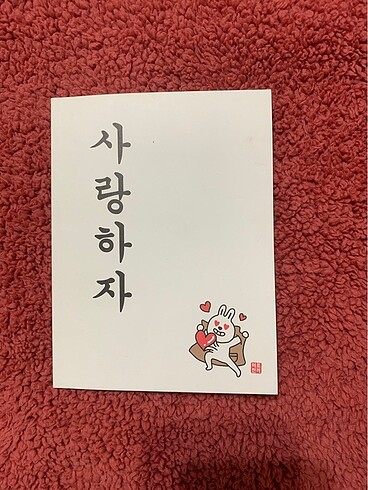 사랑하자